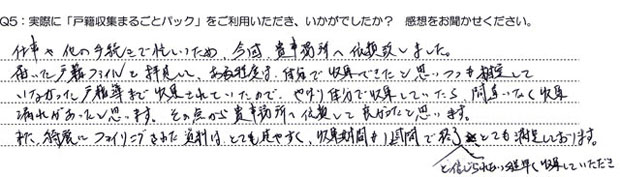 Q5：実際に「戸籍収集まるごとパック」をご利用いただき、いかがでしたか？ 感想をお聞かせください。
仕事や他の手続きで忙しいため、今回、貴事務所へ依頼致しました。
届いた戸籍ファイルを拝見して、ある程度は自分で収集できたと思いつつも想定して
いなかった戸籍等まで収集されていたので、やはり自分で収集していたら間違いなく収集
漏れがあったと思います。その点から貴事務所へ依頼して良かったと思います。
また、綺麗にファイリングされた資料は、とても見やすく、収集期間も1週間で終了 とても満足しております。
と信じられない速さで収集していただき